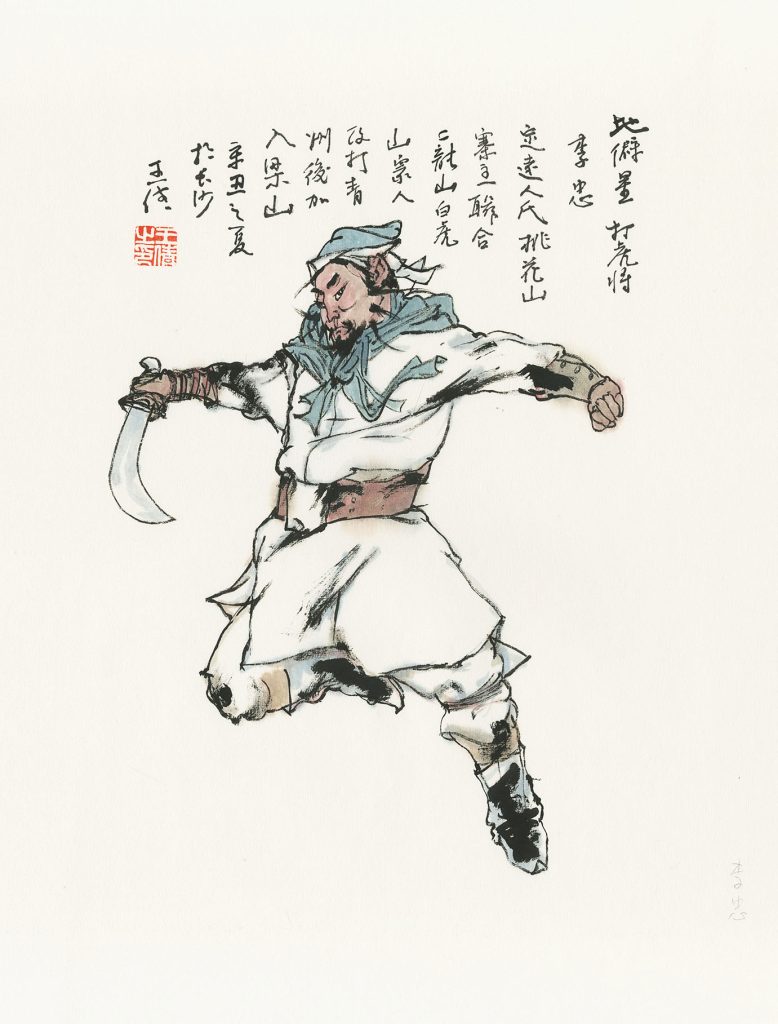 地僻星 打虎将
李忠
定远人氏 桃花山
寨主 联合
二龍山白虎
山众人
攻打青
州後加
入梁山
辛丑之夏
於长沙
王
李忠